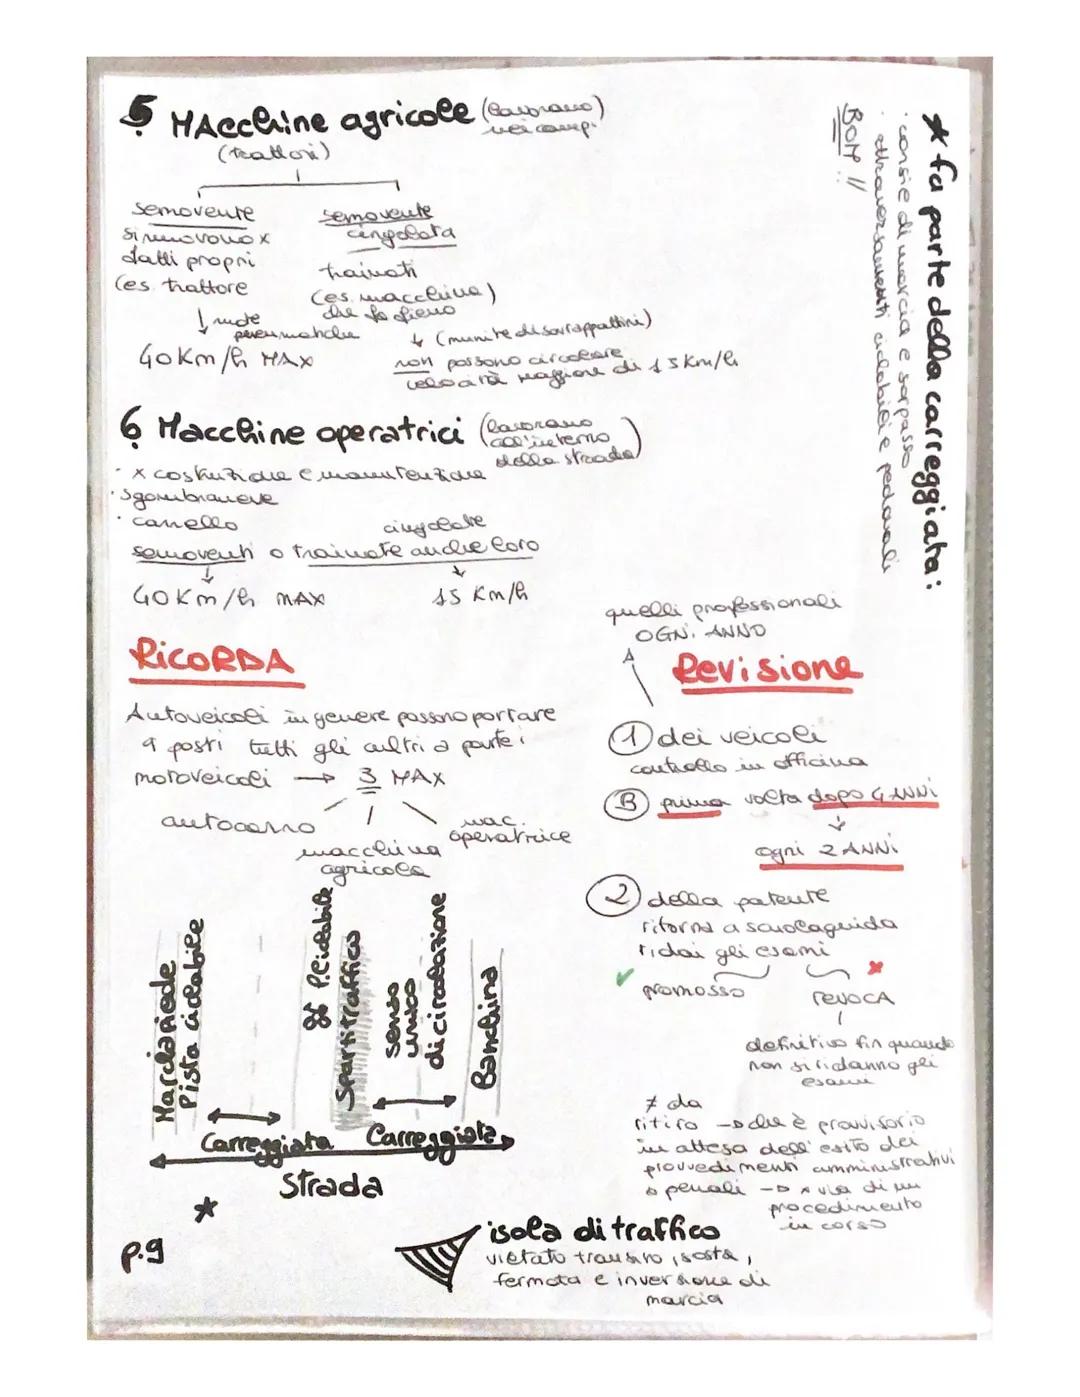 5 MAcchine agricole (lavorano nei campi)
(trattori)
semovente
si muovono x
fatti propri
(es. trattore
ruote
pneumatiche
40 Km/h MAX
semovente
cingolata
trainati
(es. macchina)
che fa fieno
(munite di sovrappattini)
non possono circolare
velocità maggiore di 15 Km/h
6 Macchine operatrici (lavorano
all'interno
della strada)
· x costruzione e manutenzione
· sgombraneve
· carrello
cingolate
semoventi o trainate anche loro
40 Km/h MAX
15 Km/h
* fa parte della carreggiata:
· corsie di marcia e sorpasso
· attraversamenti ciclabili e pedonali
BOH !!
RicORDA
Autoveicoli in genere possono portare
9 posti tutti gli altri a parte i
motoveicoli → 3 MAX
autocarro
macchina
agricola
mac.
operatrice
quelli professionali
OGNi ANNO
Revisione
1 dei veicoli
controllo in officina
B prima volta dopo 4 ANNi
ogni 2 ANNi
2 della patente
ritorno a scuolaguida
ridai gli esami
promosso
revocA
definitivo fin quando
non si ridanno gli
esami
≠ da
ritiro → che è provvisorio
in attesa dell'esito dei
provvedimenti amministrativi
o penali → x via di un
procedimento
in corso
Marciapiede
Pista ciclabile
P.Ciclabile
Spartitraffico
senso
unico
di circolazione
Banchina
Carreggiata
Carreggiata
Strada
*
p.9
isola di traffico
vietato transito, sosta,
fermata e inversione di
marcia